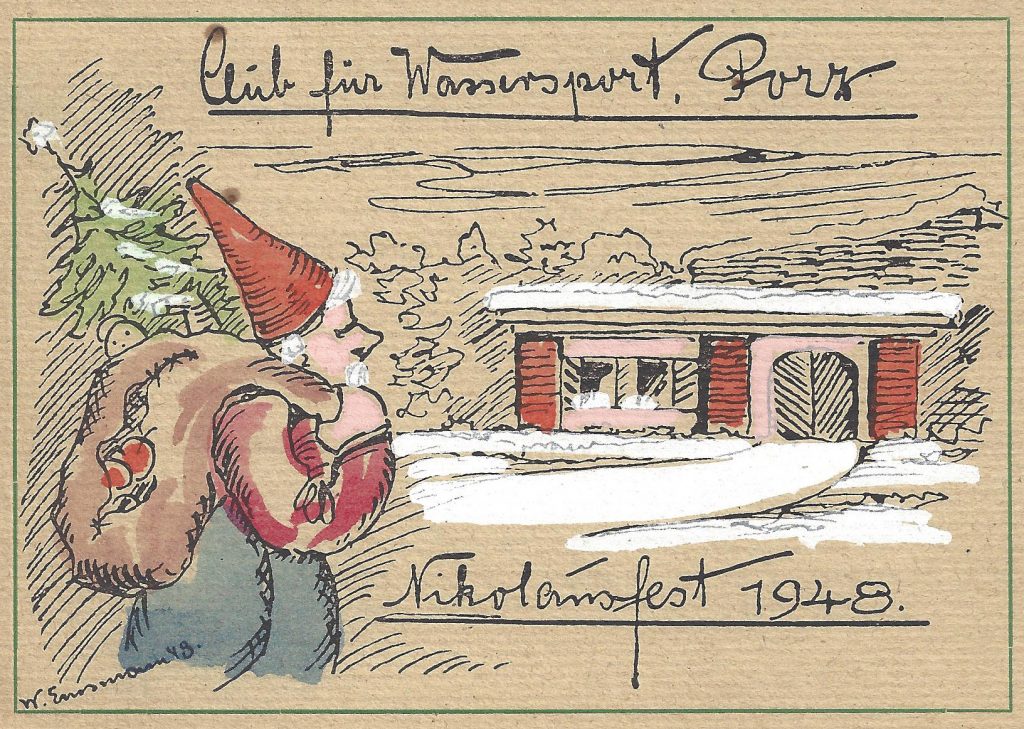 Club für Wassersport, Porz
Nikolausfest 1948.
W. Emsmann 48.